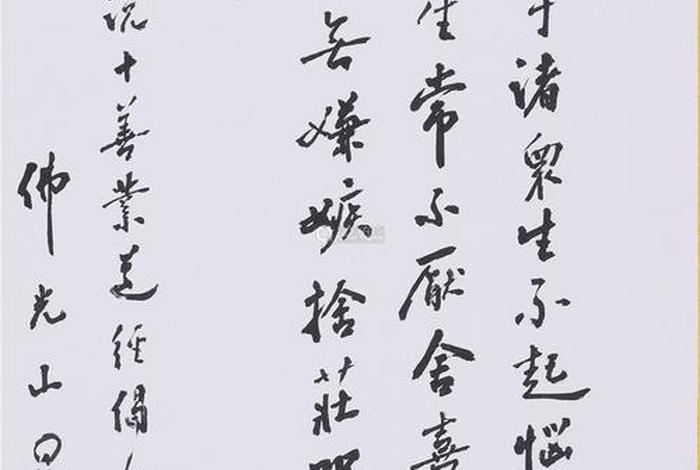 諸眾生不起惱
生常不厭舍喜
無嫌嫉捨莊
說十善業道經偈
佛光山